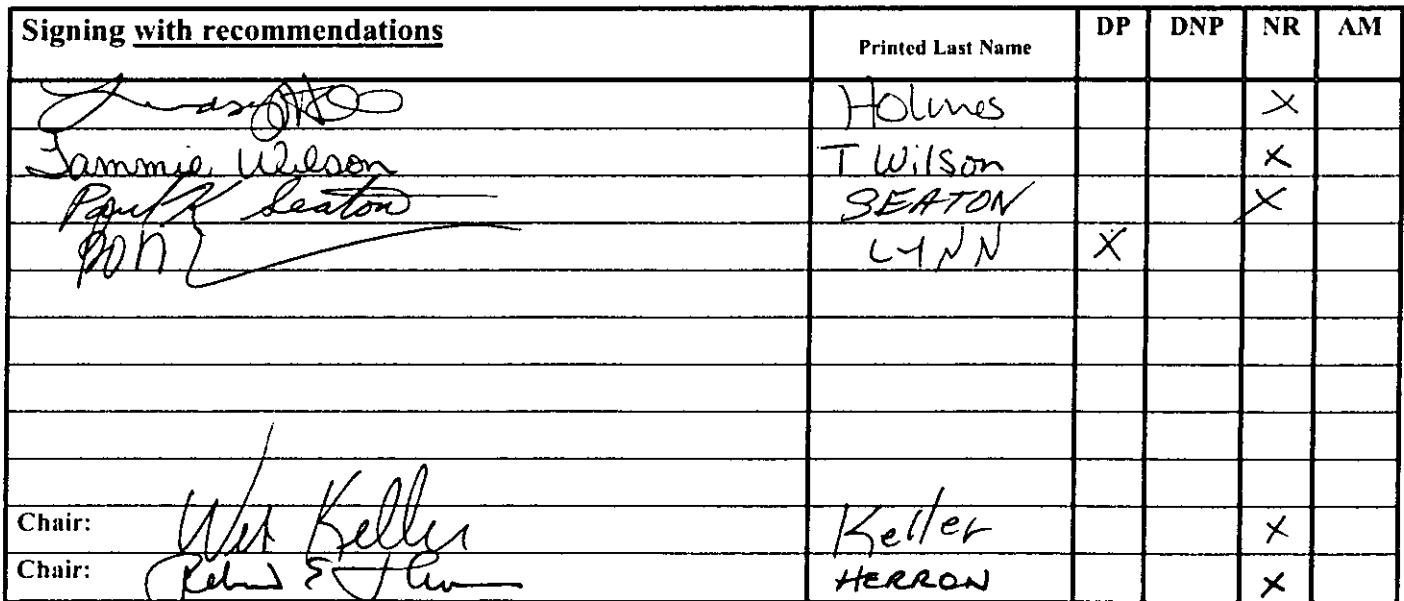 Signing with recommendations Printed Last Name DP DNP NR AM
Holmes X
Tammie Wilson T Wilson X
Paul K Seaton SEATON X
LYNN X
Chair: Keller Keller X
Chair: HERRON X